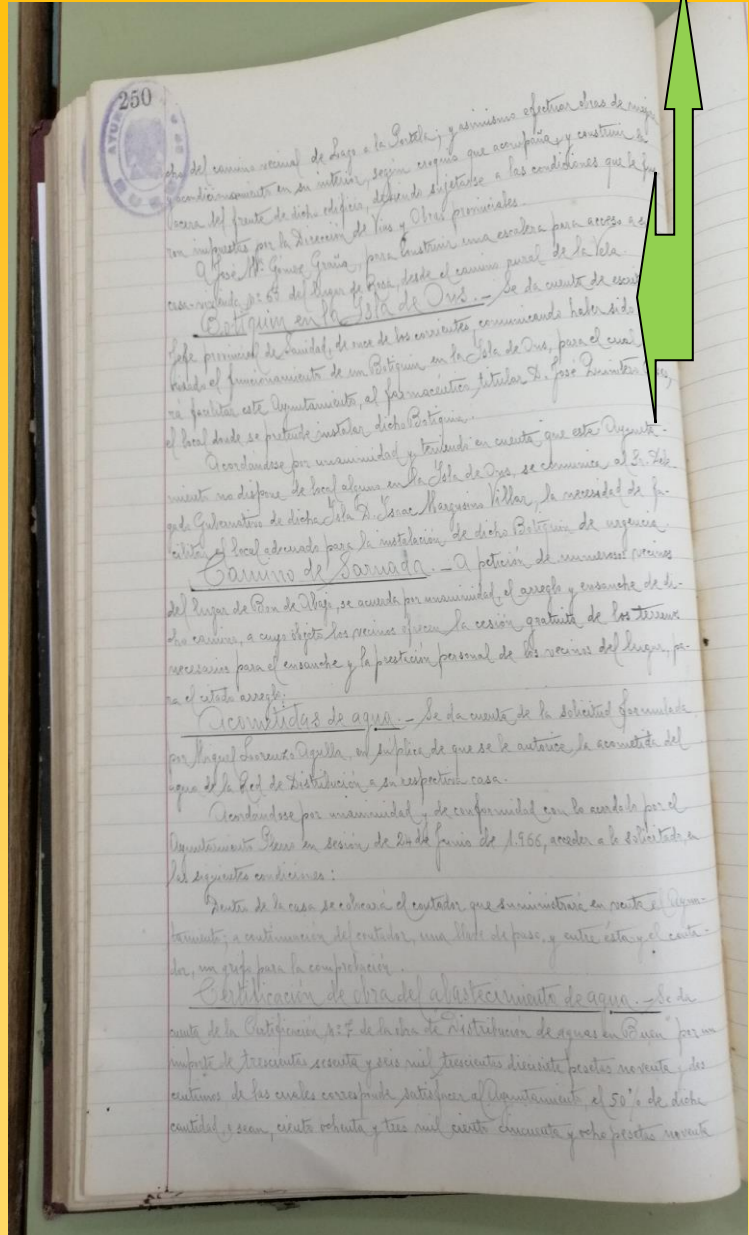 250
cho del camino vecinal de Lago a la Portela; y asimismo efectuar obras de mejora
y acondicionamiento en su interior, según croquis que acompaña, y construir la
acera del frente de dicho edificio, debiendo sujetarse a las condiciones que le fue
ron impuestas por la Dirección de Vias y Obras provinciales.
A José Mª Gómez Graña, para construir una escalera para acceso a
casa-vivienda, nº 67 del lugar de desde el camino rural de la Vela.
Botiquin en la Isla de Ons.- Se da cuenta de
Jefe provincial de Sanidad, de once de los corrientes, comunicando haber sido
el funcionamiento de un Botiquin en la Isla de Ons, para el cual
rá facilitar este Ayuntamiento, al farmacéutico titular D. José Quintero
el local donde se pretende instalar dicho Botiquin.
Acordándose por unanimidad y, teniendo en cuenta que este Ayunta-
miento no dispone de local alguno en la Isla de Ons, se comunica al Sr. Dele
gado Gubernativo de dicha Isla D. Isaac Villar, la necesidad de fa-
cilitar el local adecuado para la instalación de dicho Botiquin de urgencia.
Camino de Sarnada.- A petición de numerosos vecinos
del lugar de Bon de Abajo, se acuerda por unanimidad, el arreglo y ensanche de di-
cho camino, a cuyo objeto los vecinos ofrecen la cesión gratuita de los terrenos
necesarios para el ensanche y la prestación personal de los vecinos del lugar, pa-
ra el citado arreglo.
Acometidas de agua.- Se da cuenta de la solicitud formulada
por Miguel Lorenzo Agulla, en súplica de que se le autorice la acometida del
agua de la Red de Distribución a su respectiva casa.
Acordándose por unanimidad y de conformidad con lo acordado por el
Ayuntamiento Pleno en sesión de 24 de Junio de 1.966, acceder a lo solicitado, en
las siguientes condiciones:
Dentro de la casa se colocará el contador que suministrará en venta el Ayun-
tamiento; a continuación del contador, una llave de paso, y entre ésta y el conta-
dor, un grifo para la comprobación.
Certificación de obra del abastecimiento de agua.- Se da
cuenta de la Certificación nº 7 de la obra de "Distribución de aguas en Bueu" por un
importe de trescientas sesenta y seis mil trescientas diecisiete pesetas noventa y dos
centimos de las cuales corresponde satisfacer al Ayuntamiento, el 50% de dicha
cantidad, o sean, ciento ochenta y tres mil ciento cincuenta y ocho pesetas noventa